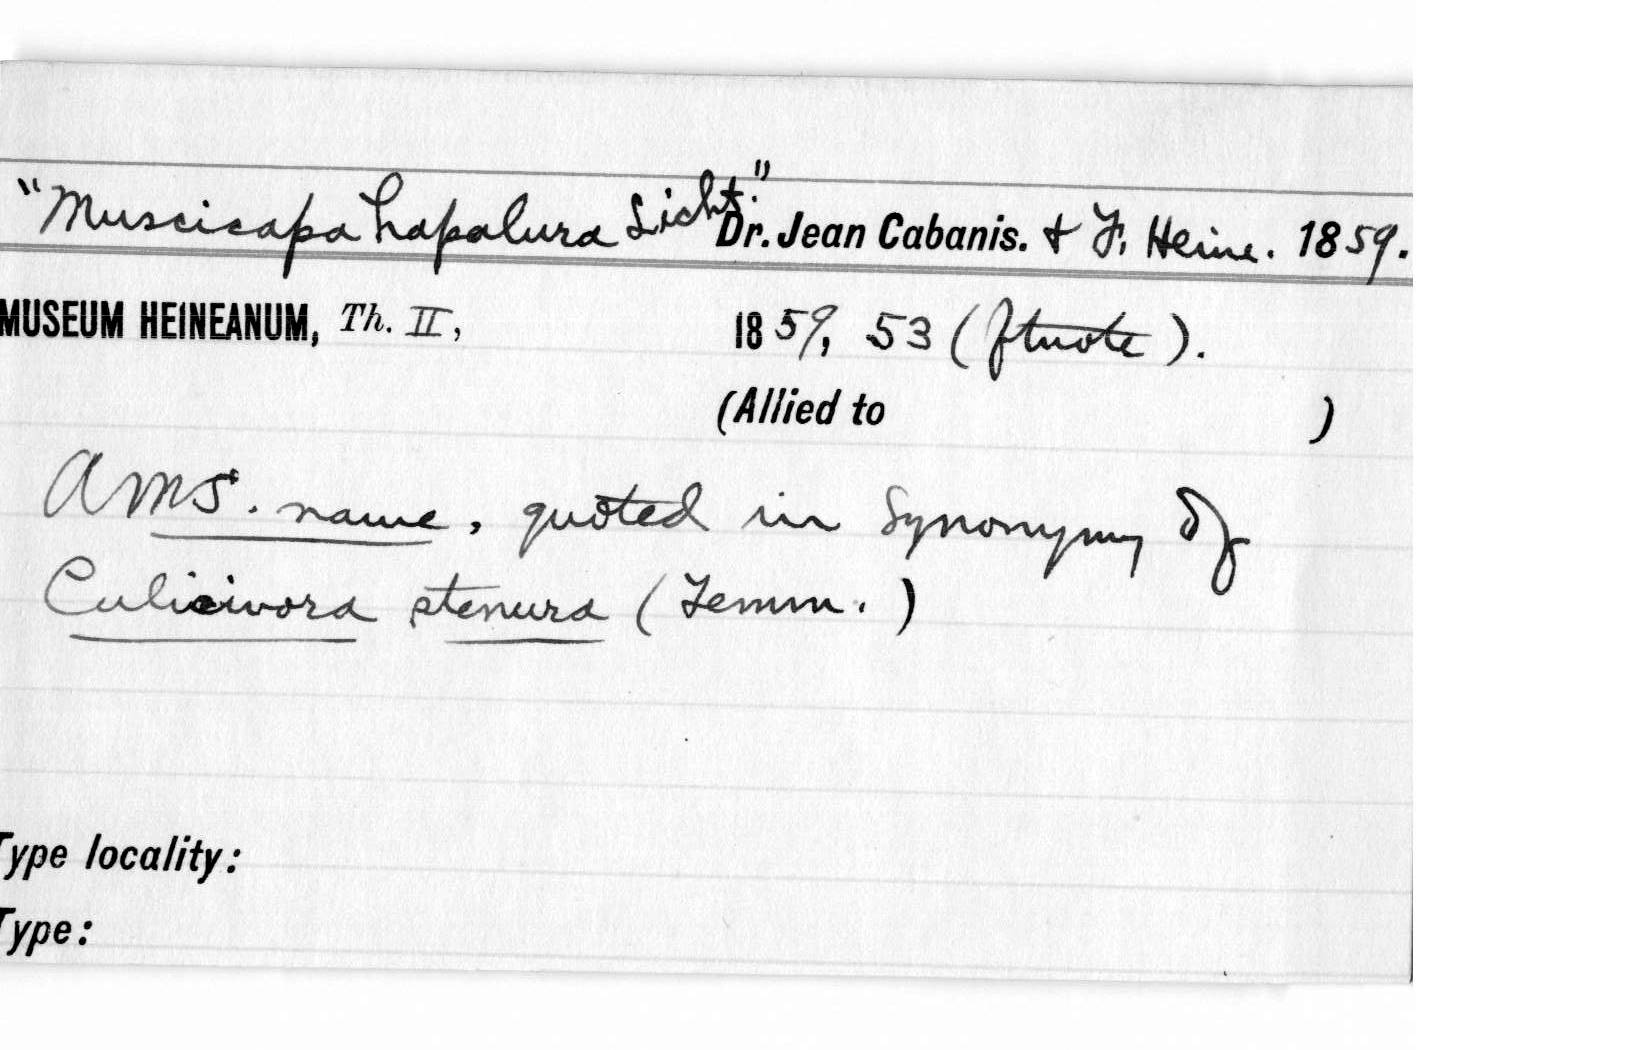 "Muscicapa hapalura Licht." Dr. Jean Cabanis. + F. Heine. 1859.
MUSEUM HEINEANUM, Th. II, 1859, 53 (ftnote).
(Allied to )
A MS. name, quoted in Synonymy of
Culicivora stenura (Temm.)
Type locality:
Type: